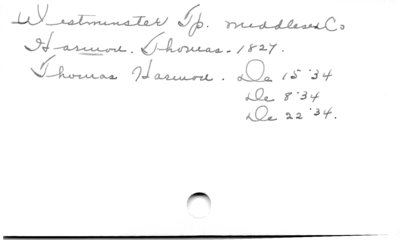 Westminster Tp. Middlesex Co
Harmon. Thomas - 1827.
Thomas Harmon. De 15 '34
De 8 '34
De 22 '34.